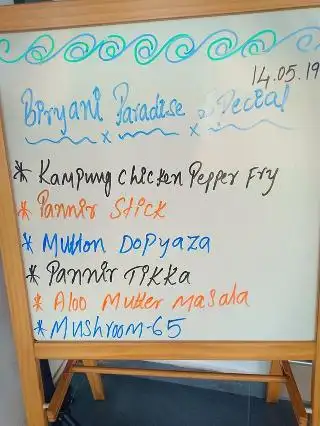 14.05.19
Biryani Paradise Special
* Kampung Chicken Pepper Fry
* Pannir Stick
* Mutton Dopyaza
* Pannir Tikka
* Aloo Mutter Masala
* Mushroom-65